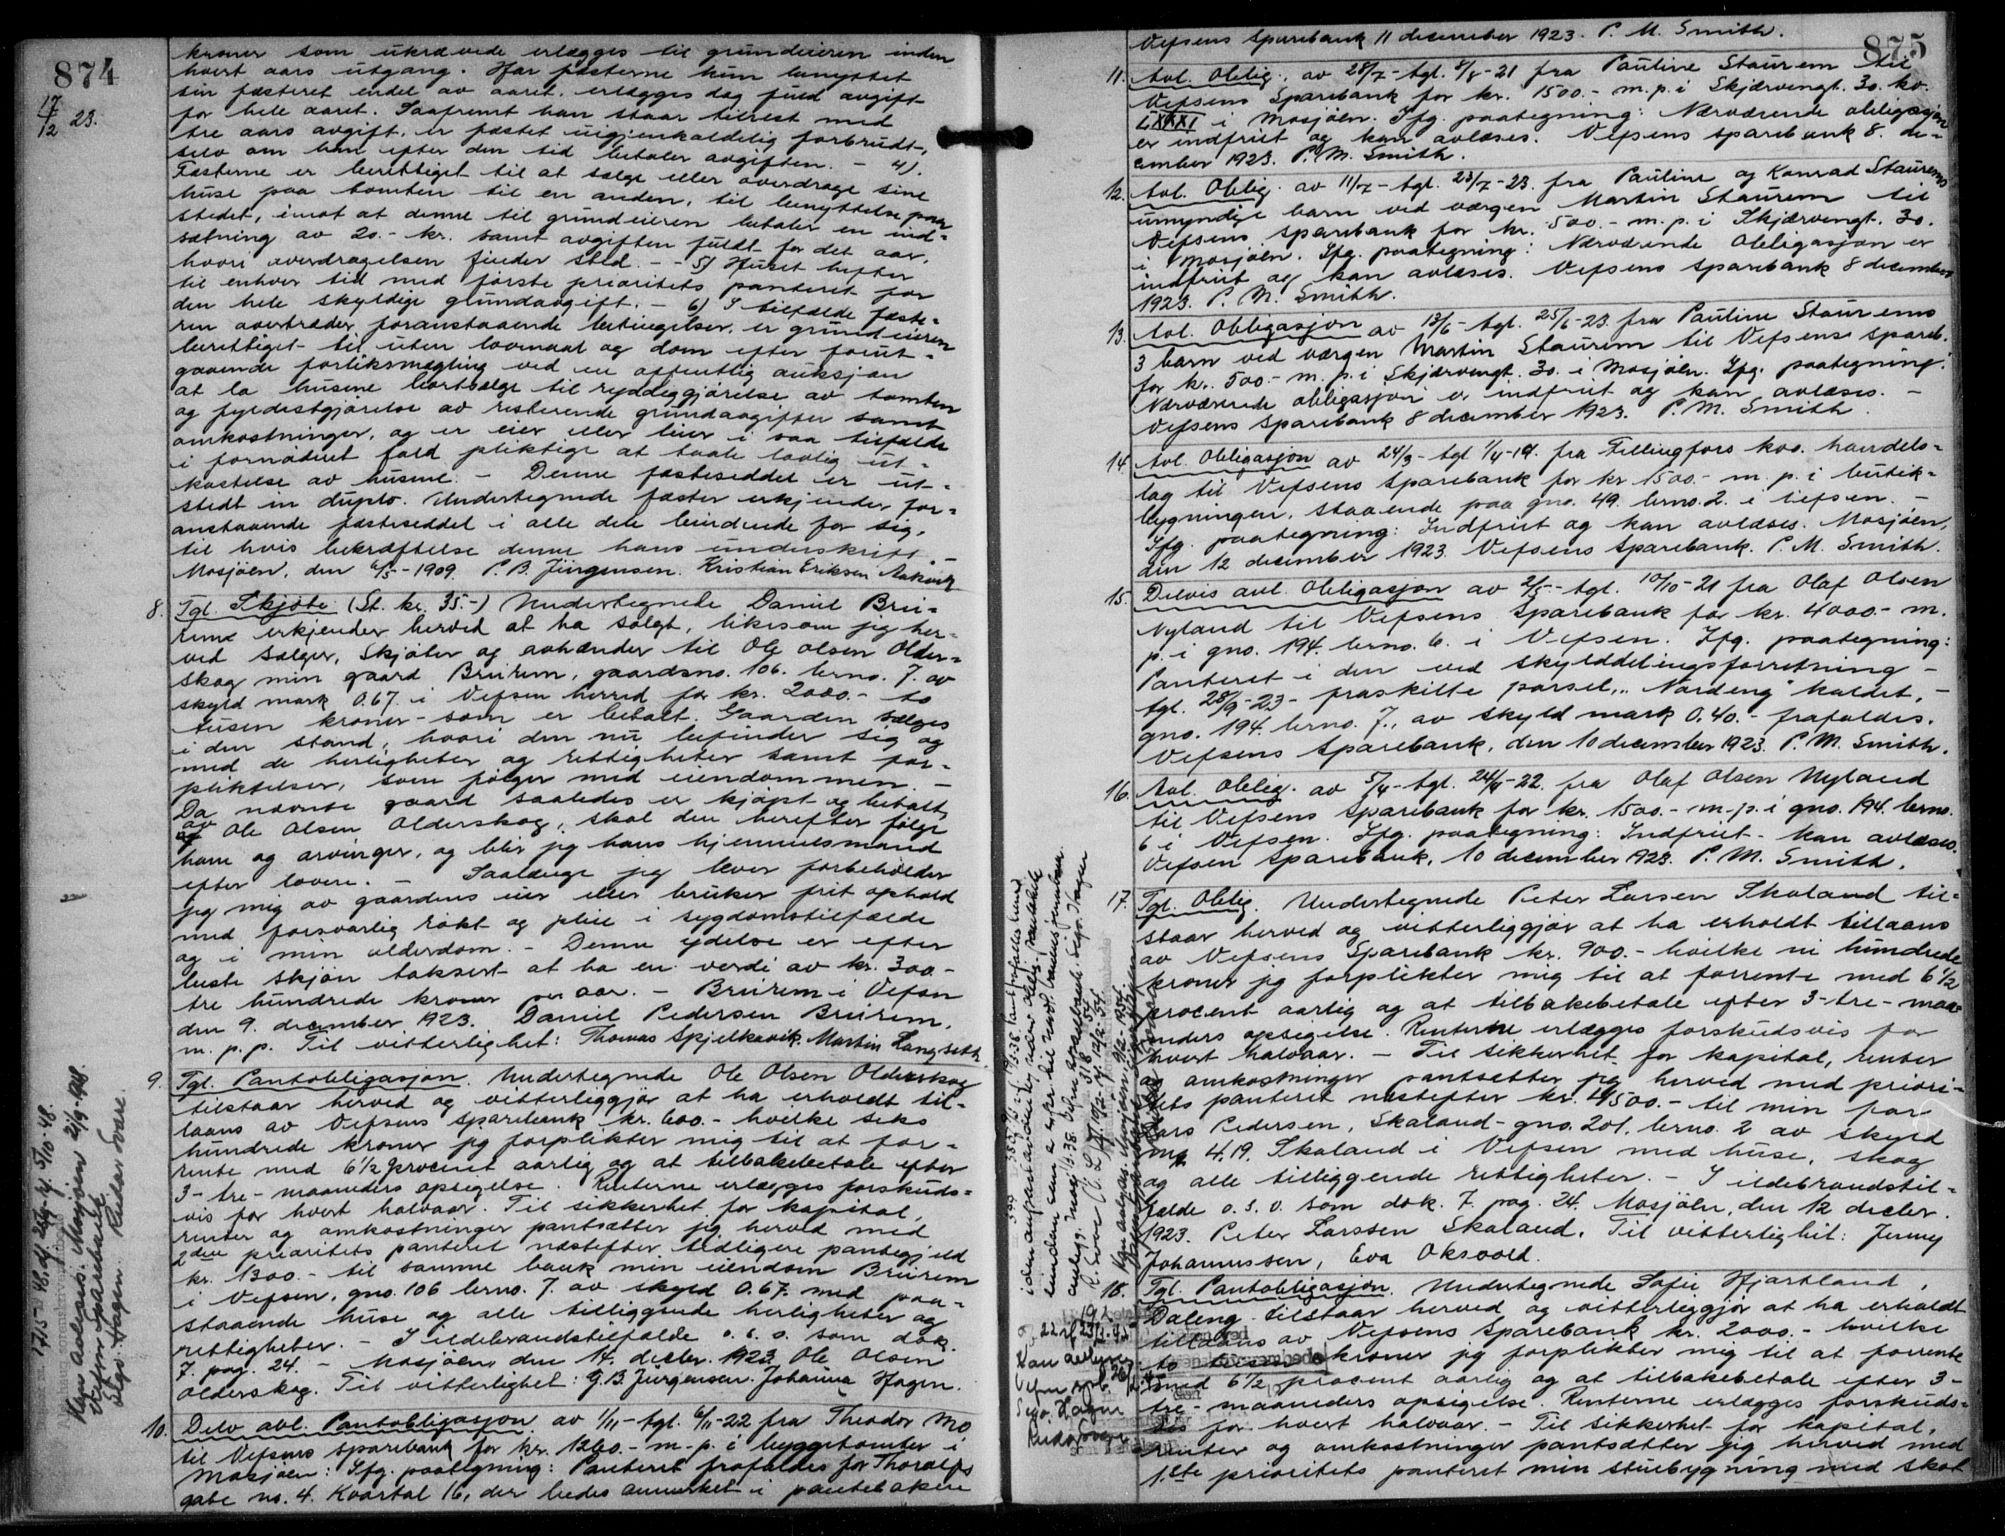 874
17/12 23.
kroner som ukrævede erlægges til grundeieren inden
hvert aars utgang. Har fæsterne kun benyttet
sin fæsteret endel av aaret, erlægges dog fuld avgift
for hele aaret. Saafremt han staar tilrest med
tre aars avgift, er fæstet uigjenkaldelig forbrudt,
selv om han efter den tid betaler avgiften. - 4).
Fæsterne er berettiget til at sælge eller overdrage sine
huse paa tomten til en anden, til benyttelse paa
stedet, imot at denne til grundeieren betaler en ind-
sætning av 20.- kr. samt avgiften fuldt for det aar,
hvori overdragelsen finder sted. - - 5) Huset hefter
til enhver tid med første prioritets panteret for
den hele skyldige grundavgift. - 6) I tilfælde fæste-
ren overtræder foranstaaende betingelser, er grundeieren
berettiget til uten lovmaal og dom efter forut-
gaaende forliksmægling ved en offentlig auksjon
at la husene bortsælge til ryddeggjørelse av tomten
og fyldestgjørelse av resterende grundavgifter samt
omkostninger, og er eier eller leier i saa tilfælde
i fornødent fald pliktige at taale lovlig ut-
kastelse av husene. - Denne fæsteseddel er ut-
stedt in duplo. Undertegnede fæster erkjender for-
anstaaende fæsteseddel i alle dele bindende for sig,
til hvis bekræftelse denne hans underskrift -
Mosjøen, den 6/5-1909. P. B. Jürgensen. Kristian Eriksen Aakvik
8. Tgl. Skjøte (St. kr. 35.-) Undertegnede Daniel Bru-
rem erkjender herved at ha solgt, likesom jeg her-
ved sælger, skjøter og avhænder til Ole Olsen Older-
skog min gaard Brurem, gaardsno. 106. brno. 7. av
skyld mark 0.67 i Vefsen herred for kr. 2000.- to
tusen kroner - som er betalt. Gaarden sælges
i den stand, hvori den nu befinder sig og
med de herligheter og rettigheter samt for-
pliktelser, som følger med eiendommen. -
Da nævnte gaard saaledes er kjøpt og betalt
av Ole Olsen Olderskog, skal den herefter følge
ham og arvinger, og blir jeg hans hjemmelsmand
efter loven. - Saalænge jeg lever forbeholder
jeg mig av gaardens eier eller bruker frit ophold
med forsvarlig røkt og pleie i sygdomstilfælde
og i min alderdom. - Denne ydelse er efter
beste skjøn taksert at ha en verdi av kr. 300.-
tre hundrede kroner per aar. - Brurem i Vefsn
den 9. december 1923. Daniel Pedersen Brurem.
m. p. p. Til vitterlighet: Thomas Spjelkavik. Martin Langseth
9. Tgl. Pantobligasjon. Undertegnede Ole Olsen Olderskog
tilstaar herved og vitterliggjør at ha erholdt til-
laans av Vefsens Sparebank kr. 600.- hvilke seks
hundrede kroner jeg forplikter mig til at for-
rente med 6 1/2 procent aarlig og at tilbakebetale efter
3- tre - maaneders opsigelse. Renterne erlægges forskuds-
vis for hvert halvaar. Til sikkerhet for kapital,
renter og omkostninger pantsætter jeg herved med
2den prioritets panteret næstefter tidligere pantegjæld
kr. 1300.- til samme bank min eiendom Brurem
i Vefsen, gno. 106 brno. 7. av skyld 0.67. med paa-
staaende huse og alle tilliggende herligheter og
rettigheter. - I ildebrandstilfælde o. s. v. som dok.
7. pag. 24. - Mosjøen, den 14. decbr. 1923. Ole Olsen
Olderskog. Til vitterlighet: G. B. Jürgensen. Johanna Hagen.
10. Delv. avl. Pantobligasjon av 1/11- tgl. 6/11-22 fra Theodor Mo
til Vefsens Sparebank for kr. 1260.- m. p. i byggetomter i
Mosjøen: Ifg. paategning: Panteret frafaldes for Thoralfs
gate no. 4. Kvartal 16, der bedes anmerket i pantebøkene
1715-48. d. 29/9- t. 5/10-48.
Kan avlesas. Mosjøen 21/9 1948.
Vefsn Sparebank
Sigv. Hagen. Reidar Svare.
875
Vefsens Sparebank 11 december 1923. P. M. Smith.
11. Avl. Oblig. av 28/7 - tgl. 8/8-21 fra Pauline Staurem til
Vefsens Sparebank for kr. 1500.- m. p. i Skjærvengt. 30. kv.
LXXXI i Mosjøen. Ifg. paategning: Nærværende obligasjon
er indfriet og kan avlæses. Vefsens Sparebank 8. de-
cember 1923. P. M. Smith.
12. Avl. Oblig. av 11/7 - tgl. 23/7-23. fra Pauline og Konrad Staurems
umyndige barn ved værgen Martin Staurem til
Vefsens Sparebank for kr. 500.- m. p. i Skjærvengt. 30.
i Mosjøen. Ifg. paategning: Nærværende Obligasjon er
indfriet og kan avlæses. Vefsens Sparebank 8 december
1923. P. M. Smith.
13. Avl. Obligasjon av 13/6 - tgl. 25/6-23. fra Pauline Staurems
3 barn ved værgen Martin Staurem til Vefsens Spareb.
for kr. 500.- m. p. i Skjærvengt. 30. i Mosjøen. Ifg. paategning:
Nærværende obligasjon er indfriet og kan avlæses. -
Vefsens Sparebank 8 december 1923. P. M. Smith.
14. Avl. Obligasjon av 24/3 - tgl 1/4-19. fra Fellingfors koo. handels-
lag til Vefsens Sparebank for kr 1500.- m. p. i butik-
bygningen, staaende paa gno. 49. brno. 2. i Vefsen. -
Ifg. paategning: Indfriet og kan avlæses. Mosjøen,
den 12 december 1923. Vefsens Sparebank. P. M. Smith.
15. Delvis avl. Obligasjon av 2/5 - tgl. 10/10-21 fra Olaf Olsen
Nyland til Vefsens Sparebank for kr. 4000.- m.
p. i gno. 194. brno. 6. i Vefsen. Ifg. paategning:
Panteret i den ved skylddelingsforretning -
tgl. 28/9-23- fraskilte parsel, "Nordeng" kaldet, -
gno. 194. brno. 7., av skyld mark 0.40.- frafaldes.
Vefsens Sparebank, den 10 december 1923. P. M. Smith.
16. Avl. Oblig. av 5/4 - tgl. 24/4-22. fra Olaf Olsen Nyland
til Vefsens Sparebank for kr. 1500.- m. p. i gno. 194. brno.
6 i Vefsen. Ifg. paategning: Indfriet - kan avlæses.
Vefsen Sparebank, 10 december 1923. P. M. Smith.
17. Tgl. Oblig. Undertegnede Peter Larsen Skaland til-
staar herved og vitterliggjør at ha erholdt tillaans
av Vefsens Sparebank kr. 900.- hvilke ni hundrede
kroner jeg forplikter mig til at forrente med 6 1/2
procent aarlig og at tilbakebetale efter 3- tre - maa-
neders opsigelse. Renterne erlægges forskudsvis for
hvert halvaar. - Til sikkerhet for kapital, renter
og omkostninger pantsetter jeg herved med priori-
tets panteret næstefter kr. 4500.- til min far
Lars Pedersen, Skaland - gno. 201. brno. 2 av skyld
mk 4.19. Skaland i Vefsen med huse, skog
og alle tilliggende rettigheter. - I ildebrandstil-
fælde o. s. v. som dok. 7. pag. 24. Mosjøen, den 12 decbr.
1923. Peter Larssen Skaland. Til vitterlighet: Jenny
Johannessen, Eva Oksvold.
18. Tgl. Pantobligasjon. Undertegnede Sofie Hjartland,
Daleng tilstaar herved og vitterliggjør at ha erholdt
tillaans av Vefsens Sparebank kr. 2000.- hvilke
to tusen kroner jeg forplikter mig til at forrente
med 6 1/2 procent aarlig og at tilbakebetale efter 3-
tre - maaneders opsigelse. Renterne erlægges forskuds-
vis for hvert halvaar. - Til sikkerhet for kapital,
renter og omkostninger pantsætter jeg herved med
1ste prioritets panteret min stuebygning med skot